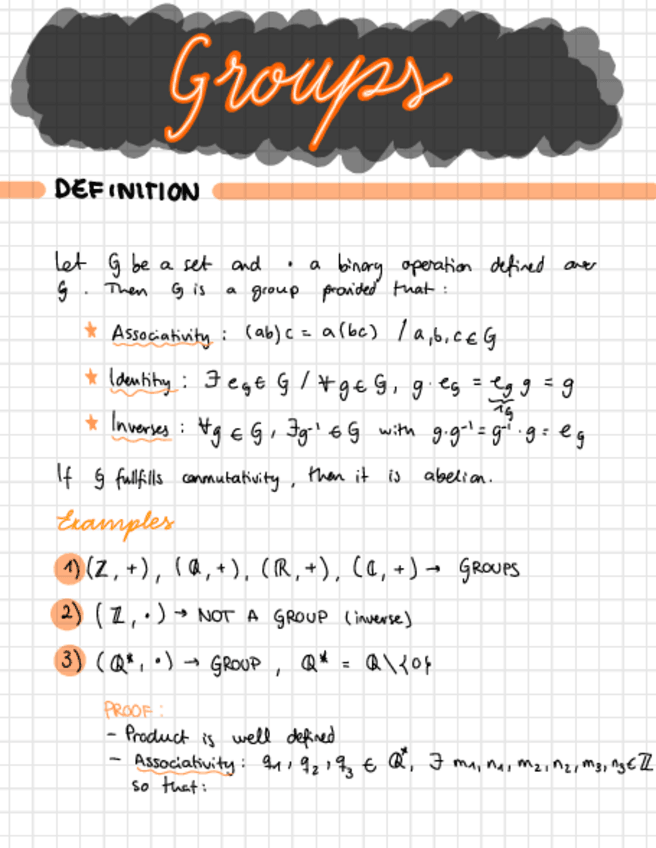 Groups
DEFINITION
Let G be a set and · a binary operation defined over
G. Then G is a group provided that:
★ Associativity: (ab)c = a(bc) / a,b,c ∈ G
★ Identity: ∃ e_G ∈ G / ∀g ∈ G, g·e_G = e_G g = g
1_G
★ Inverses: ∀g ∈ G, ∃g⁻¹ ∈ G with g·g⁻¹ = g⁻¹·g = e_G
If G fullfills conmutativity, then it is abelian.
Examples
1) (ℤ, +), (ℚ, +), (ℝ, +), (ℂ, +) → GROUPS
2) (ℤ, ·) → NOT A GROUP (inverse)
3) (ℚ*, ·) → GROUP, ℚ* = ℚ\{0}
PROOF:
- Product is well defined
- Associativity: q₁, q₂, q₃ ∈ ℚ*, ∃ m₁, n₁, m₂, n₂, m₃, n₃ ∈ ℤ
so that: